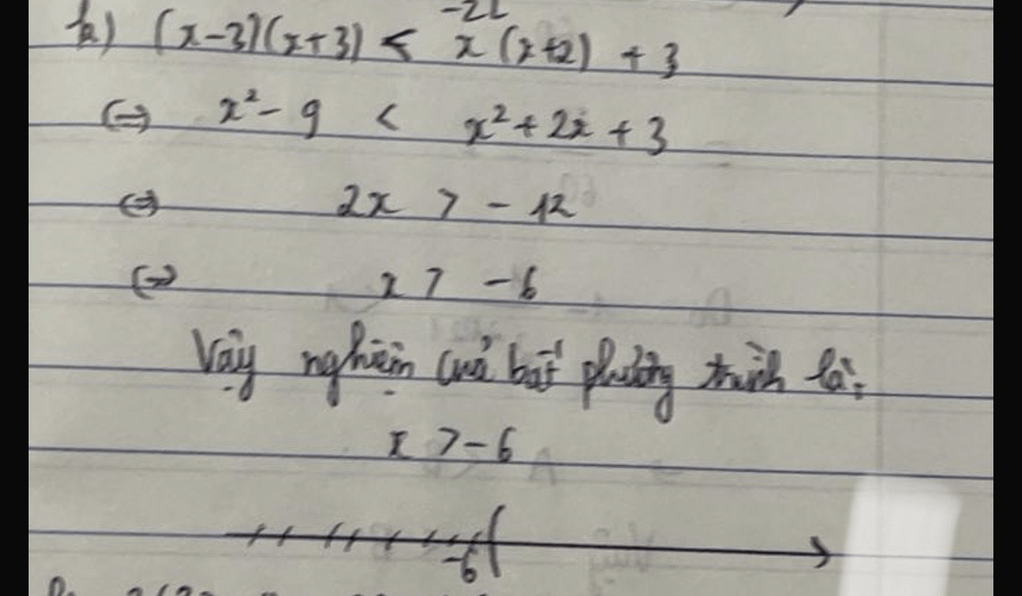 b) (x-3)(x+3) < x(x+2) + 3
(=) x² - 9 < x² + 2x + 3
(=) 2x > - 12
(=) x > - 6
Vậy nghiệm của bất phương trình là:
x > -6
-6